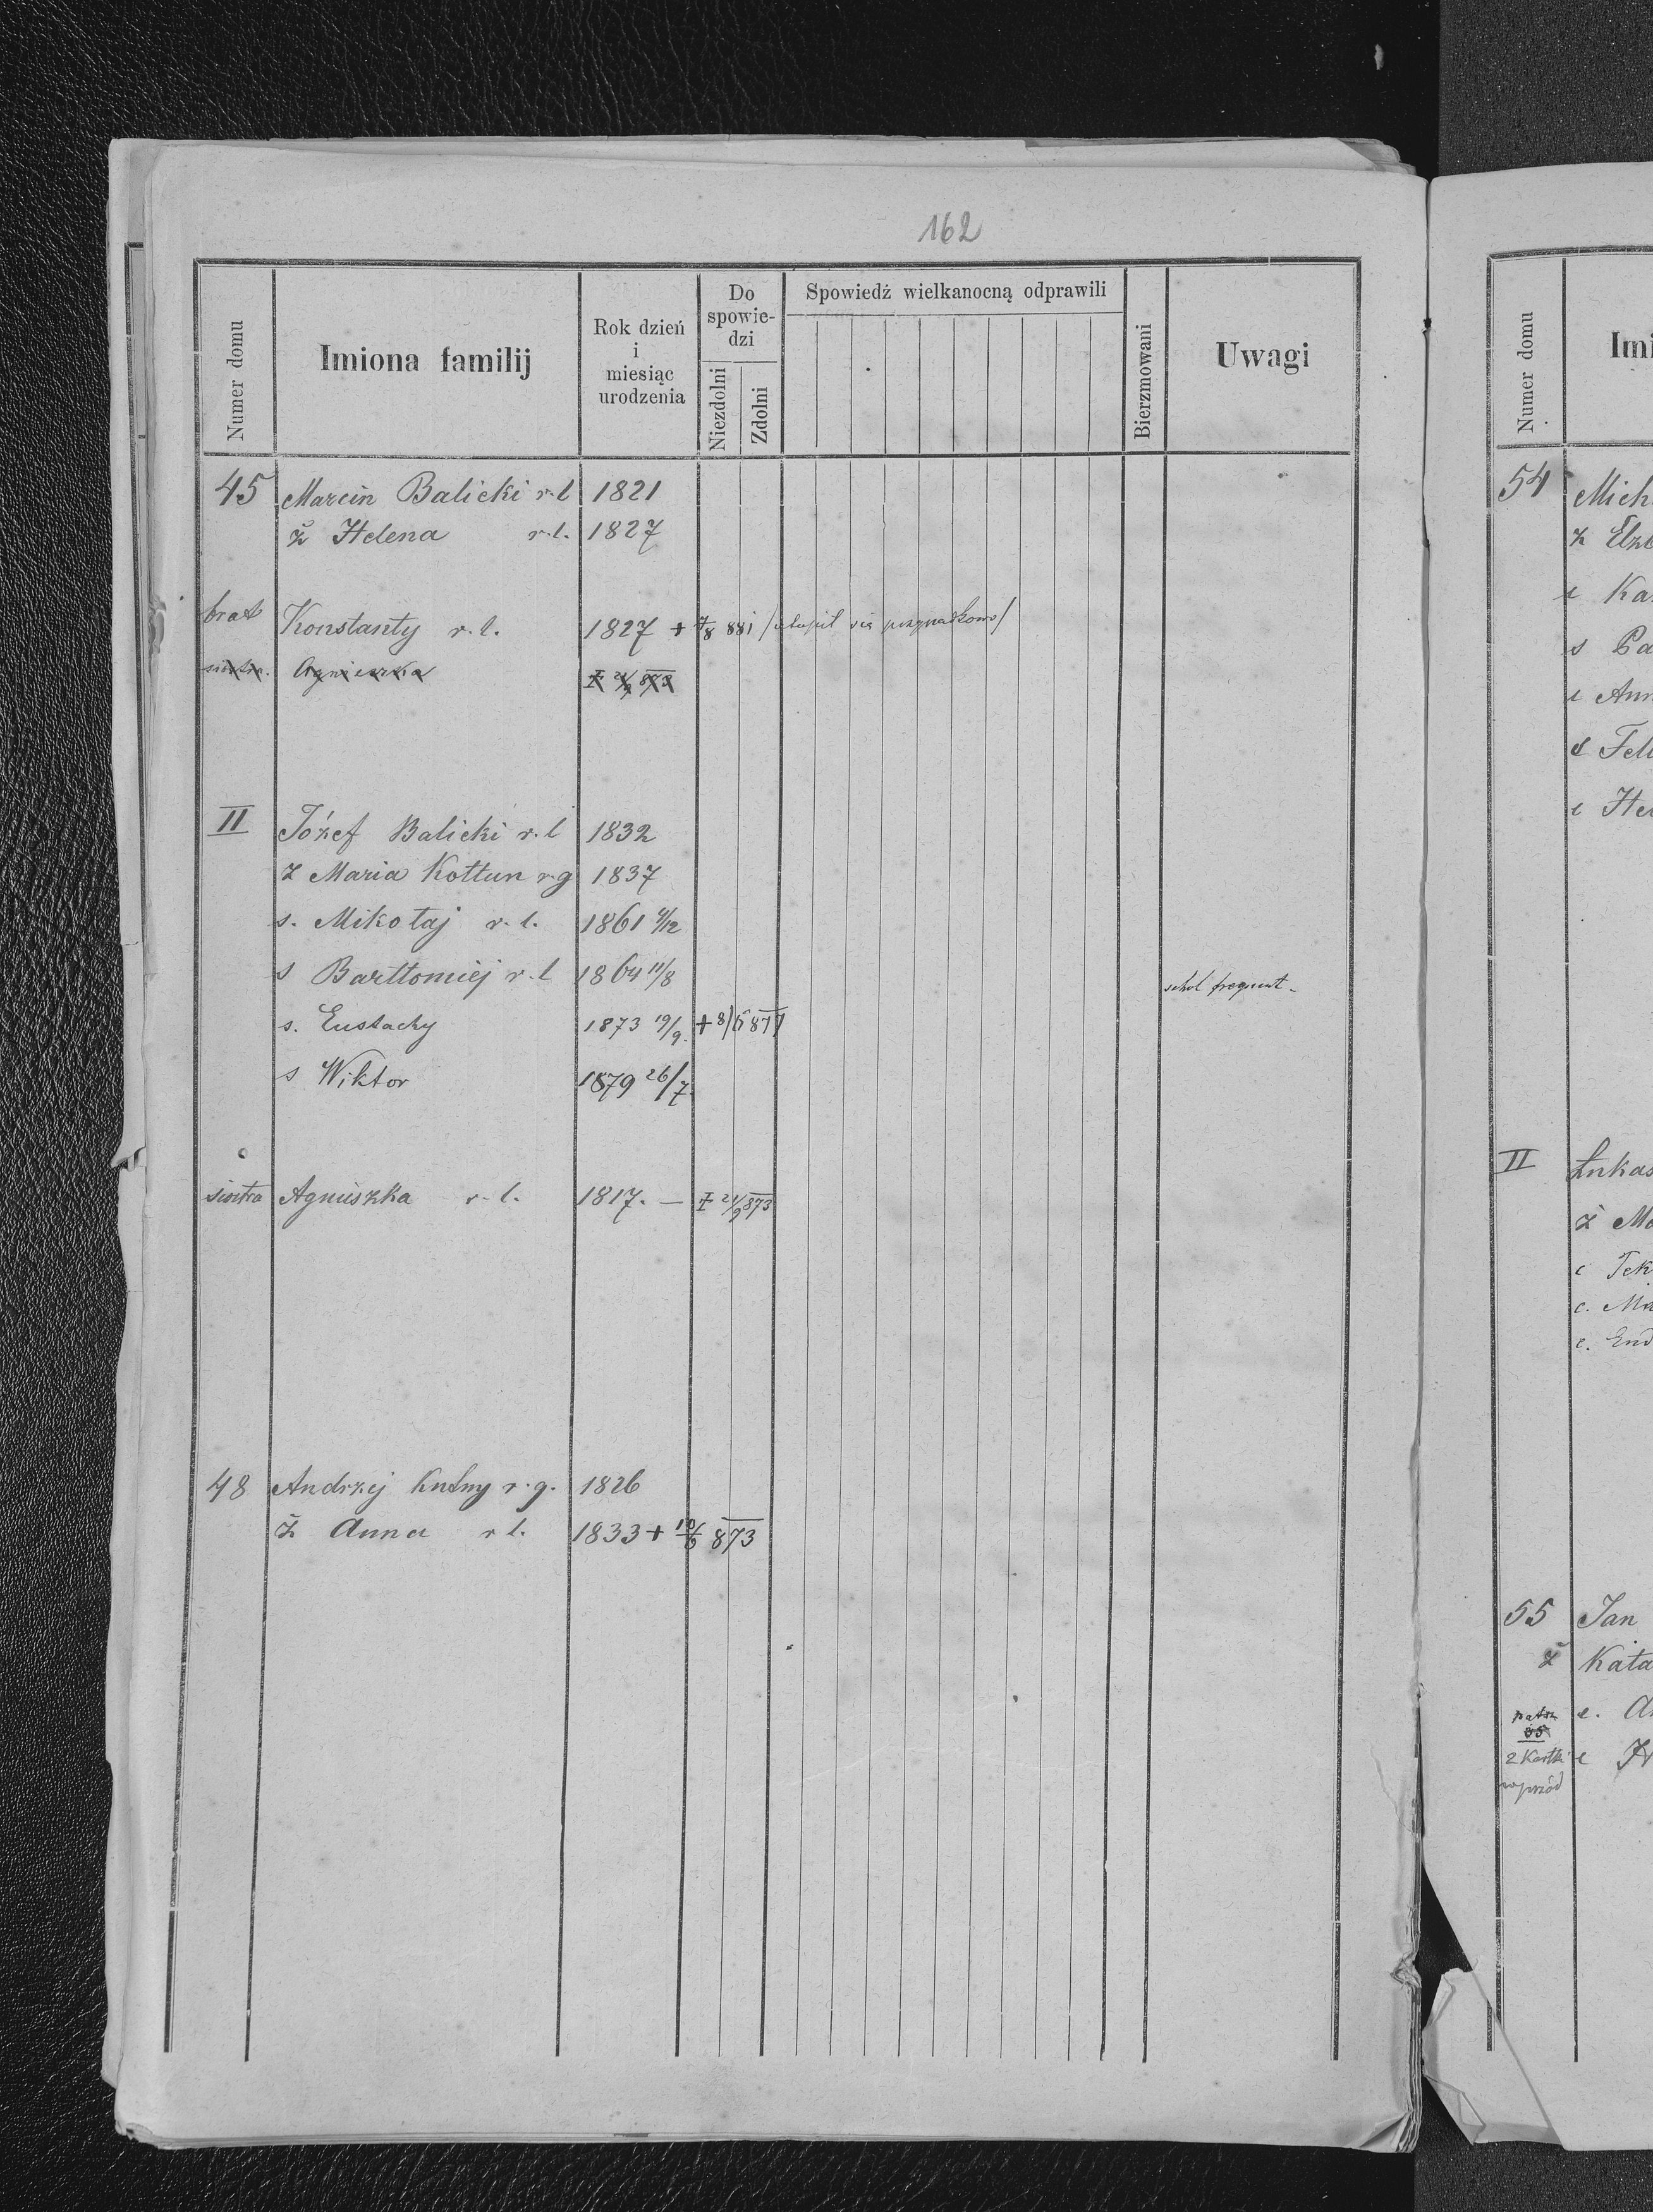 162
Numer domu
Imiona familij
Rok dzień
i
miesiąc
urodzenia
Do
spowie-
dzi
Niezdolni
Zdolni
Spowiedź wielkanocną odprawili
Bierzmowani
Uwagi
45 Marcin Balicki r. l 1821
ż Helena r. l. 1827
brat Konstanty r. l. 1827 + 7/8 881 /utopił się przypadkowo/
siostra. Agnieszka + 21/9 873
II Józef Balicki r. l 1832
ż Maria Kottun r. g 1837
s. Mikołaj r. l. 1861 4/12
s Bartłomiej r. l 1864 11/8 schol frequent.
s. Eustachy 1873 19/9. + 8/5 877
s Wiktor 1879 26/7.
siostra Agnieszka r. l. 1817. — + 21/9 873
48 Andrzej Kutny r. g. 1826
ż Anna r l. 1833 + 10/6 873
Numer domu
Imi
54 Mich
ż Elżb
c Ka
s Pa
c Ann
s Fel
c Hel
II Łukas
ż Ma
c Tek
c. Ma
c. Eud
55 Jan
ż Kata
patrz
55
2 Kartki
naprzód
c. A
c